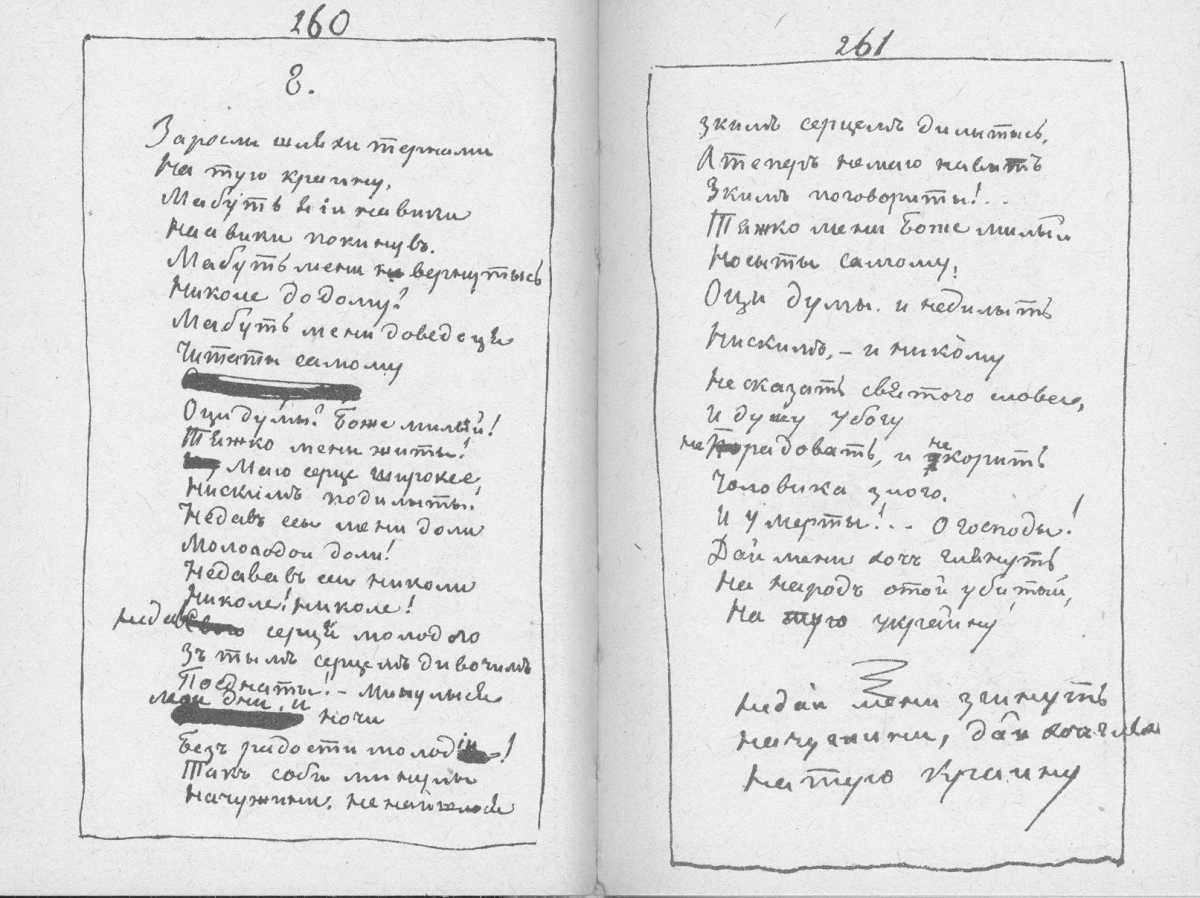 260
8.
Заросли шляхи тернами
На тую краину,
Мабуть я іи навики
Наавики покинувъ.
Мабуть мени не вернутысь
Николе додому?
Мабуть мени доведеця
Читаты самому
Оци думы? Боже милый!
Тяжко мени жыты!
Маю серце широкее,
Нискимъ подилыты!
Недавъ есы мени доли
Молодои доли!
Недававъ еси николи
Николе! николе!
недавъ серця молодого
Зъ тымъ серцемъ дивочимъ
Поєднаты! — Минулыся
мои дни, и ночи
Безъ радости молодіи!
Такъ соби минулы
Начужини. не найшлося
261
зкимъ серцемъ дилытысь,
А теперъ немаю навить
Зкимъ поговориты!..
Тяжко мени Боже милый
Носыты самому,
Оци думы. и недилыть
Нискимъ, — и никому
Не сказать святого слова,
И душу убогу
не радовать, и не корить
Человика злого.
И умерты!.. О господы!
Дай мени хочь глянуть
На народъ отой убитый,
На тую украйину!
недай мени згинуть
начужини, дай хочь
на тую краину